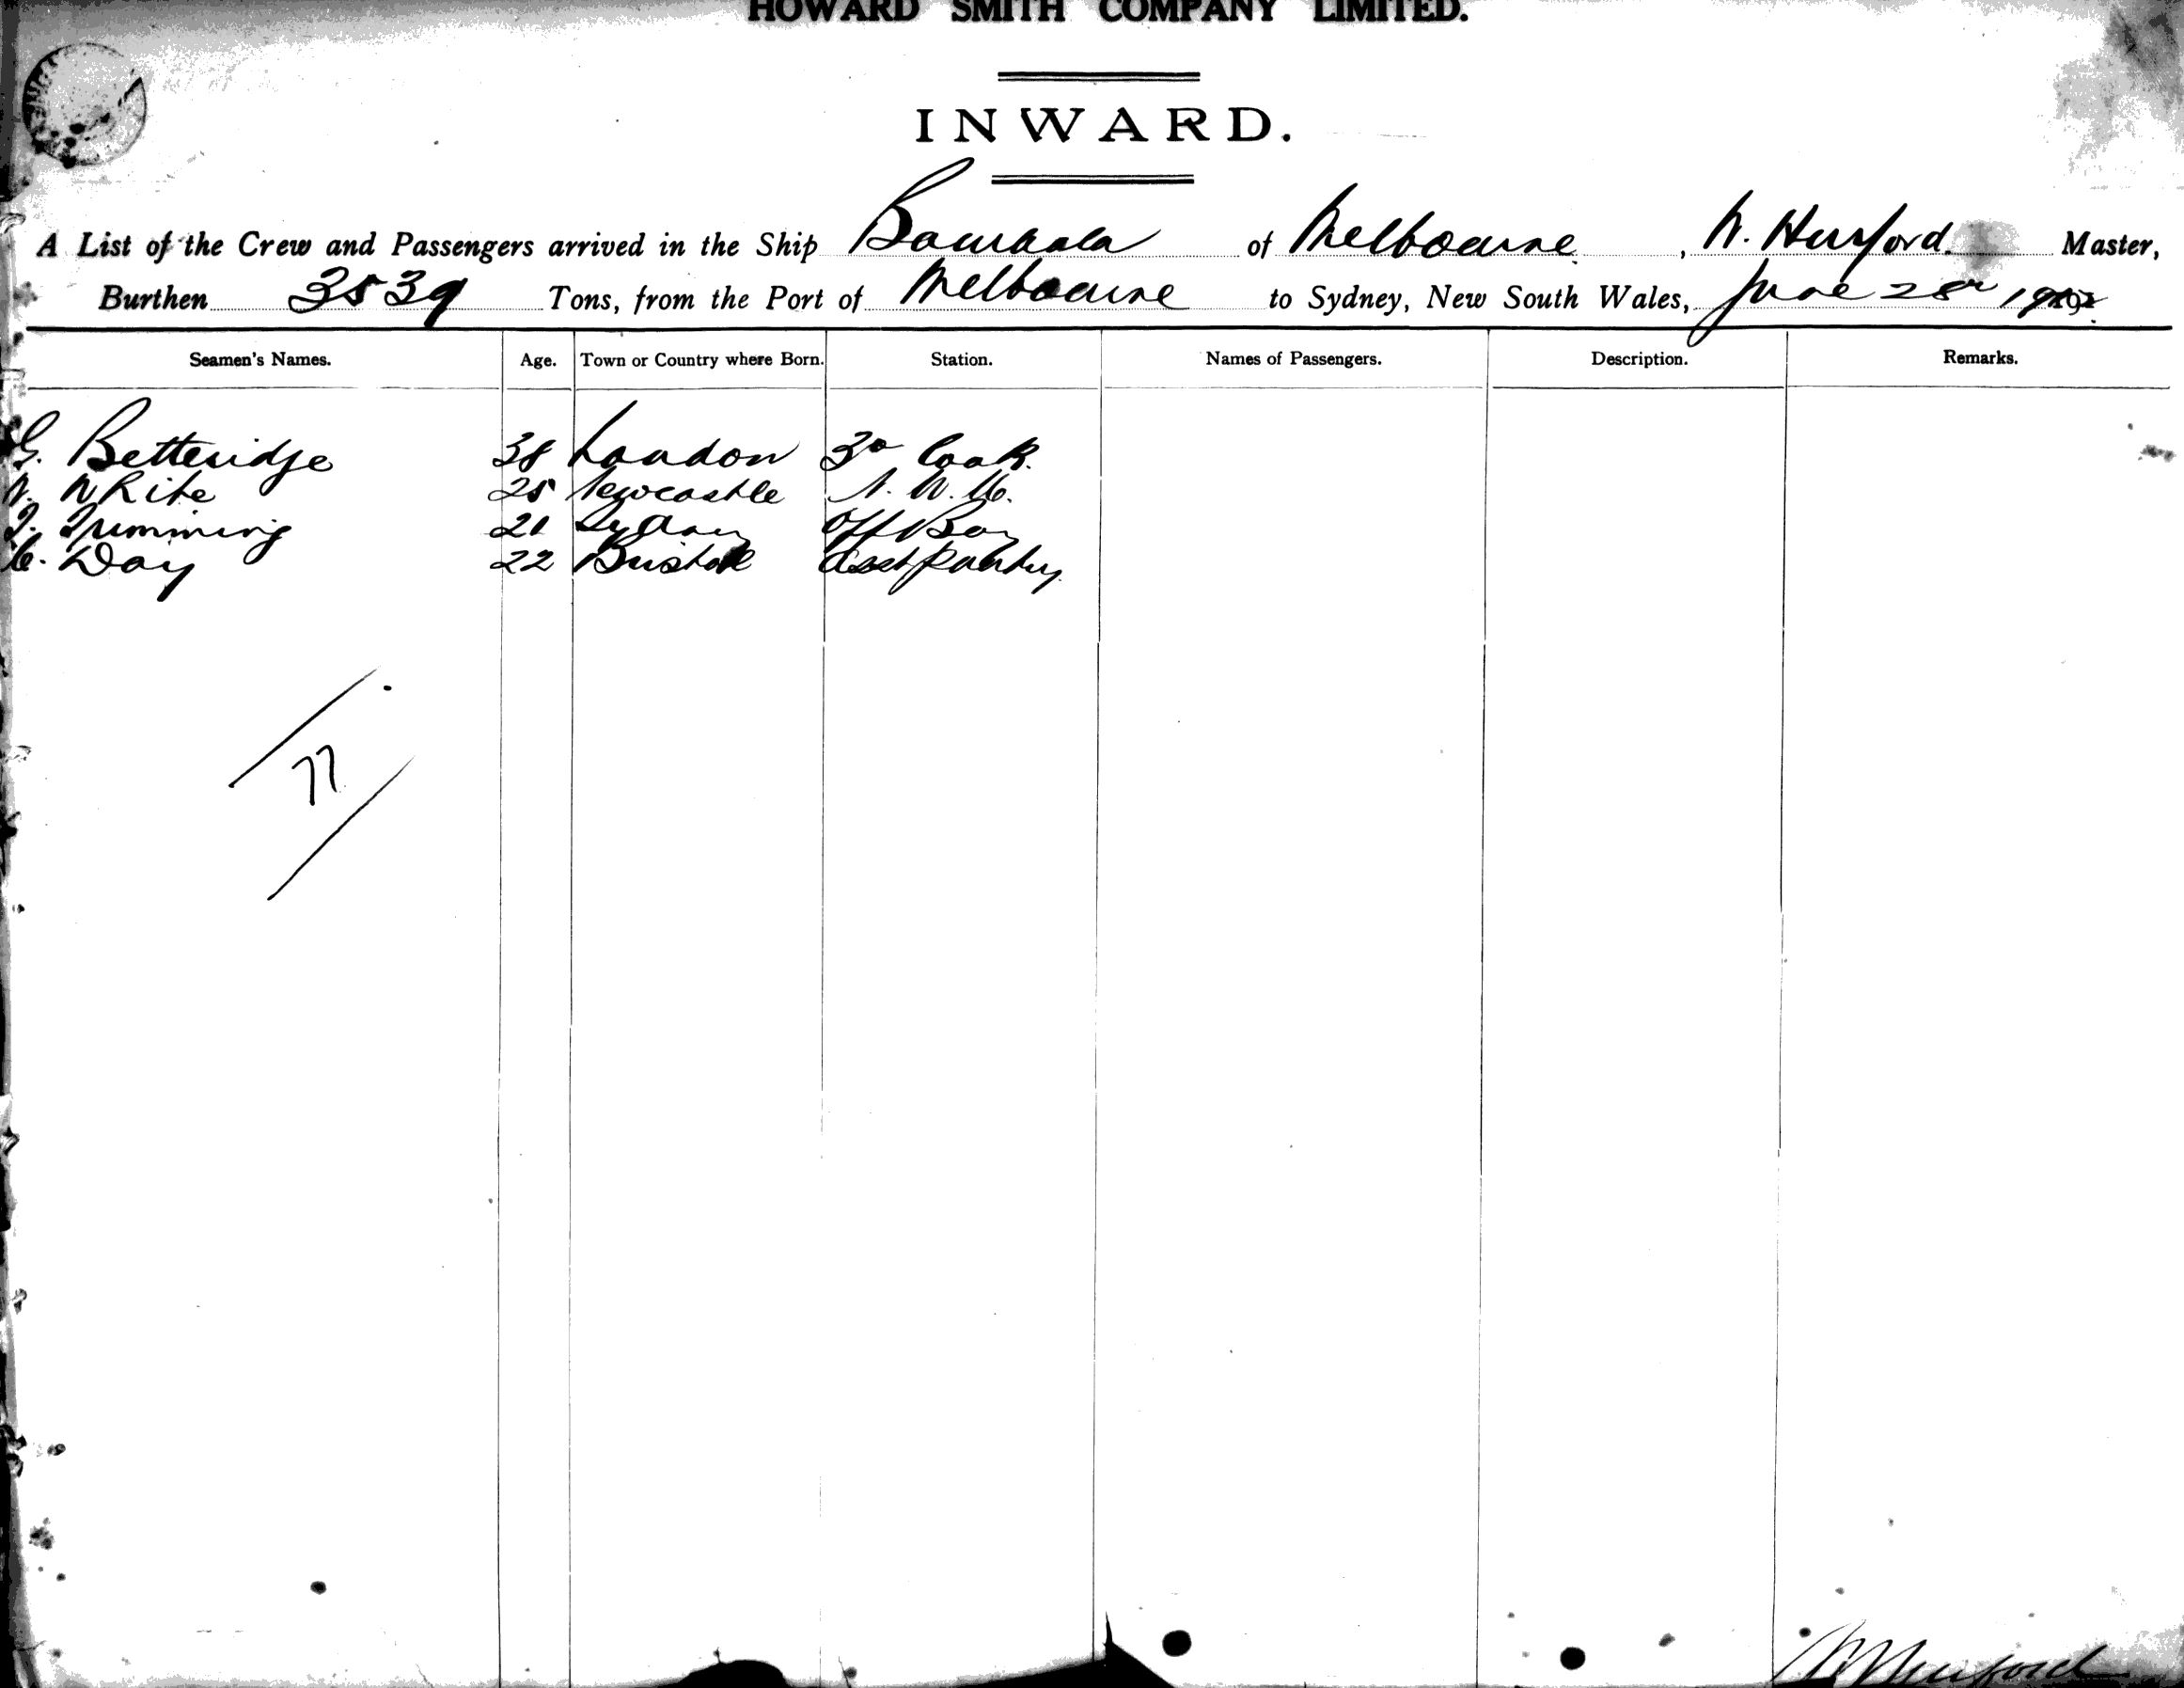 HOWARD SMITH COMPANY LIMITED.
INWARD.
A List of the Crew and Passengers arrived in the Ship Bombala of Melbourne, W. Hurford. Master,
Burthen 3539 Tons, from the Port of Melbourne to Sydney, New South Wales, June 28th
Seamen's Names. Age. Town or Country where Born. Station. Names of Passengers. Description. Remarks.
G. Betteridge 38 London 3rd Cook.
W. White 25 Newcastle
Trimming 21 Sydney Off Boy
C. Day 22 Bristol Asst Pantry
77
W Hurford